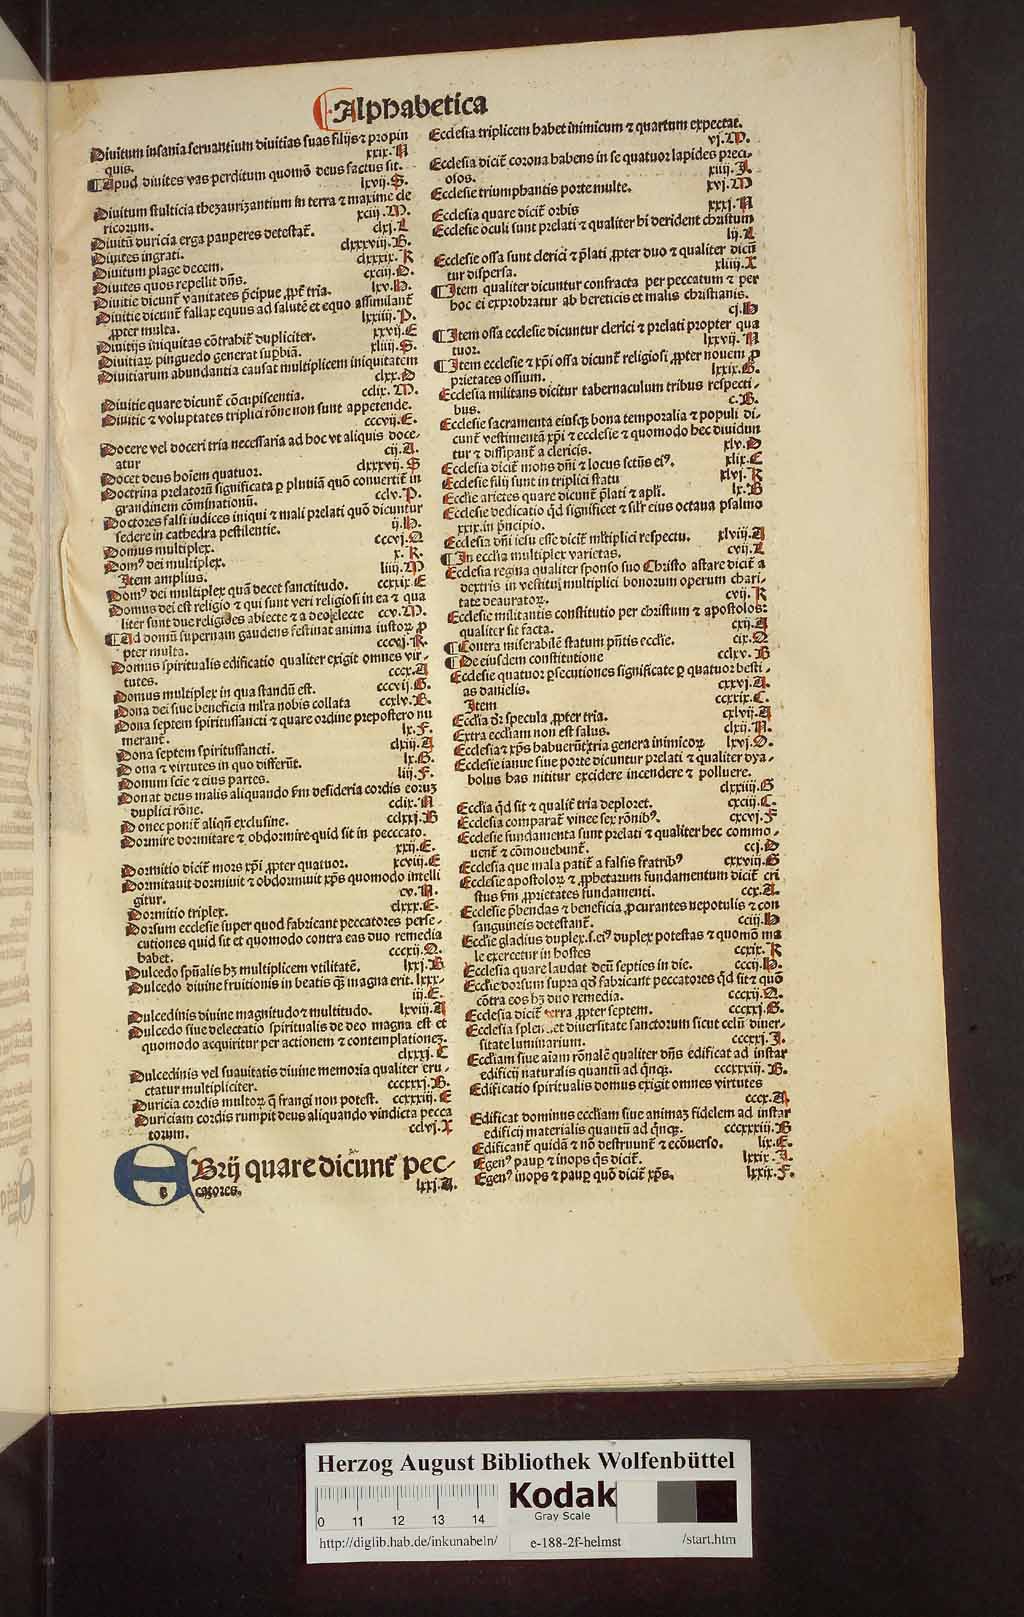 Alphabetica
Diuitum insania seruantium diuitias suas filijs ⁊ propin
quis. xxix.N
¶Apud diuites vas perditum quomō deus factus sit.
lxvij.S.
Diuitum stulticia thezaurizantium in terra ⁊ maxime de
ricorum. xciij.M.
Diuitū duricia erga pauperes detestat᷑. clxj.L
Diuites ingrati. clxxxviij.B.
Diuitum plage decem. clxxxix.K
Diuites quos repellit dn̄s. cxciij.D.
Diuitie dicunt᷑ vanitates p̄cipue ꝓpt᷑ tria. lxv.H.
Diuitie dicunt᷑ fallax equus ad salutē et equo assimilant᷑
ꝓpter multa. lxxiiij.P.
Diuitijs iniquitas cōtrahit᷑ dupliciter. xxvij.E
Diuitiarꝝ pinguedo generat supbiā. xliij.S.
Diuitiarum abundantia causat multiplicem iniquitatem
clxx.D
Diuitie quare dicunt᷑ cōcupiscentia. cclix.M.
Diuitie ⁊ voluptates triplici rōne non sunt appetende.
cccvij.E.
Docere vel doceri tria necessaria ad hoc vt aliquis doce-
atur cij.A.
Docet deus hoīem quatuor. clxxxvij.S
Doctrina prelatorū significata ꝑ pluuiā quō conuertit᷑ in
grandinem cōminationū. cclv.P.
Doctores falsi iudices iniqui ⁊ mali prelati quō dicuntur
sedere in cathedra pestilentie. ij.H.
Domus multiplex. cccvj.Q
Domꝰ dei multiplex. x.K.
Item amplius. liiij.M
Domꝰ dei multiplex quā decet sanctitudo. ccxxix.E
Domus dei est religio ⁊ qui sunt veri religiosi in ea ⁊ qua
liter sunt due religiōes abiecte ⁊ a deo electe ccv.M.
¶Ad domū supernam gaudens festinat anima iustorꝝ ꝓ
pter multa. cccvj.R.
Domus spiritualis edificatio qualiter exigit omnes vir-
tutes. cccx.A
Domus multiplex in qua standū est. cccvij.G.
Dona dei siue beneficia ml̄ta nobis collata ccxlv.B.
Dona septem spiritussancti ⁊ quare ordine prepostero nu
merant᷑. lx.F.
Dona septem spiritussancti. clxiij.A
Dona ⁊ virtutes in quo differūt. lx.G.
Donum scīe ⁊ eius partes. liij.F.
Donat deus malis aliquando ẜm desideria cordis eoruꝫ
duplici rōne. cclix.N
Donec ponit᷑ aliqn̄ exclusine. cclxxj.B
Dormire dormitare ⁊ obdormire quid sit in pecccato.
xxij.E.
Dormitio dicit᷑ mors xp̄i ꝓpter quatuor. xcviij.E
Dormitauit dormiuit ⁊ obdormiuit xp̄s quomodo intelli
gitur. cv.N.
Dormitio triplex. clxxx.E.
Dorsum ecclesie super quod fabricant peccatores perse-
cutiones quid sit et quomodo contra eas duo remedia
habet. cccxij.Q.
Dulcedo spūalis hꝫ multiplicem vtilitatē. lxxj.B
Dulcedo diuine fruitionis in beatis qꝫ magna erit. lxxx-
iij.E.
Dulcedinis diuine magnitudo ⁊ multitudo. lxviij.A
Dulcedo siue delectatio spiritualis de deo magna est et
quomodo acquiritur per actionem ⁊ contemplationeꝫ.
clxxxj.C
Dulcedinis vel suauitatis diuine memoria qualiter eru-
ctatur multipliciter. cccxxxj.B.
Duricia cordis multorꝝ q̄ frangi non potest. ccxxxiij.E
Duriciam cordis rumpit deus aliquando vindicta pecca
torum. cclvj.X
EBrij quare dicunt᷑ pec-
catores. lxxj.A.
Ecclesia triplicem habet inimicum ⁊ quartum expectat.
vj.M.
Ecclesia dicit᷑ corona habens in se quatuor lapides preci-
osos. xiiij.I.
Ecclesie triumphantis porte multe. xvj.M
Ecclesia quare dicit᷑ orbis xxxj.N
Ecclesie oculi sunt prelati ⁊ qualiter hi derident christum
lij.L
Ecclesie ossa sunt clerici ⁊ p̄lati ꝓpter duo ⁊ qualiter dicū
tur dispersa. xliiij.X
¶Item qualiter dicuntur confracta per peccatum ⁊ per
hoc ei exprobratur ab hereticis et malis christianis.
cj.H
¶Item ossa ecclesie dicuntur clerici ⁊ prelati propter qua
tuor. lxxvij.N
¶Item ecclesie ⁊ xp̄i ossa dicunt᷑ religiosi ꝓpter nouem ꝓ
prietates ossium. lxxix.G.
Ecclesia militans dicitur tabernaculum tribus respecti-
bus. c.B.
Ecclesie sacramenta eiusqꝫ bona temporalia ⁊ populi di-
cunt᷑ vestimenta xp̄i ⁊ ecclesie ⁊ quomodo hec diuidun
tur ⁊ dissipant᷑ a clericis. xlv.D
Ecclesia dicit᷑ mons dn̄i ⁊ locus sctūs eiꝰ. xlix.C
Ecclesie filij sunt in triplici statu xlvj.K
Eccl̄ie arietes quare dicunt᷑ p̄lati ⁊ apl̄i. lx.B
Ecclesie dedicatio qd̄ significet ⁊ sil̄r eius octaua psalmo
xxix.in p̄ncipio.
Ecclesia dn̄i iesu esse dicit᷑ ml̄tiplici respectu. xlviij.A
¶In eccl̄ia multiplex varietas. cvij.L
Ecclesia regina qualiter sponso suo Christo astare dicit᷑ a
dextris in vestitu multiplici bonorum operum chari-
tate deauratorꝝ. cvij.K
Ecclesie militantis constitutio per christum ⁊ apostolos:
qualiter sit facta. cxij.A
¶Contra miserabilē statum pn̄tis eccl̄ie. cix.Q
¶De eiusdem constitutione cclxv.B
Ecclesie quatuor ꝑsecutiones significate ꝑ quatuor besti-
as danielis. cxxvj.A.
Item ccxxix.C.
Eccl̄ia dr̄ specula ꝓpter tria. cxlvij.A
Extra eccl̄iam non est salus. clxij.N.
Ecclesia ⁊ xp̄s habuerūt tria genera inimicorꝝ lxvj.O.
Ecclesie ianue siue porte dicuntur prelati ⁊ qualiter dya-
bolus has nititur excidere incendere ⁊ polluere.
clxxiiij.G
Eccl̄ia qd̄ sit ⁊ qualit᷑ tria deploret. cxciij.C.
Ecclesia comparat᷑ vinee sex rōnibꝰ. cxcvj.F
Ecclesie fundamenta sunt prelati ⁊ qualiter hec commo-
uent᷑ ⁊ cōmouebunt᷑. ccj.D
Ecclesia que mala patit᷑ a falsis fratribꝰ cxxviij.G
Ecclesie apostolorꝝ ⁊ ꝓphetarum fundamentum dicit᷑ cri
stus ẜm ꝓprietates fundamenti. ccx.A.
Ecclesie p̄bendas ⁊ beneficia ꝓcurantes nepotulis ⁊ con
sanguineis detestant᷑. cciij.H
Eccl̄ie gladius duplex.s.eiꝰ duplex potestas ⁊ quomō ma
le exercetur in hostes ccxix.K
Ecclesia quare laudat deū septies in die. cccij.H.
Eccl̄ie dorsum supra qd̄ fabricant peccatores qd̄ sit ⁊ quō
cōtra eos hꝫ duo remedia. cccxij.Q.
Ecclesia dicit᷑ terra ꝓpter septem. cccxxj.G.
Ecclesia splendet diuersitate sanctorum sicut celū diuer-
sitate luminarium. cccxxj.I.
Eccl̄iam siue aīam rōnalē qualiter dn̄s edificat ad instar
edificij naturalis quantū ad q̄nqꝫ. cccxxxiij.B.
Edificatio spiritualis domus exigit omnes virtutes
cccx.A
Edificat dominus eccl̄iam siue animaꝫ fidelem ad instar
edificij materialis quantū ad q̄nqꝫ. cccxxxiij.B
Edificant᷑ quidā ⁊ nō destruunt᷑ ⁊ ecōuerso. lix.E.
Egenꝰ paup̄ ⁊ inops q̄s dicit᷑. lxxix.I.
Egenꝰ inops ⁊ paup̄ quō dicit᷑ xp̄s. lxxix.F.
Herzog August Bibliothek Wolfenbüttel
0 11 12 13 14
Kodak
Gray Scale
http://diglib.hab.de/inkunabeln/ e-188-2f-helmst /start.htm